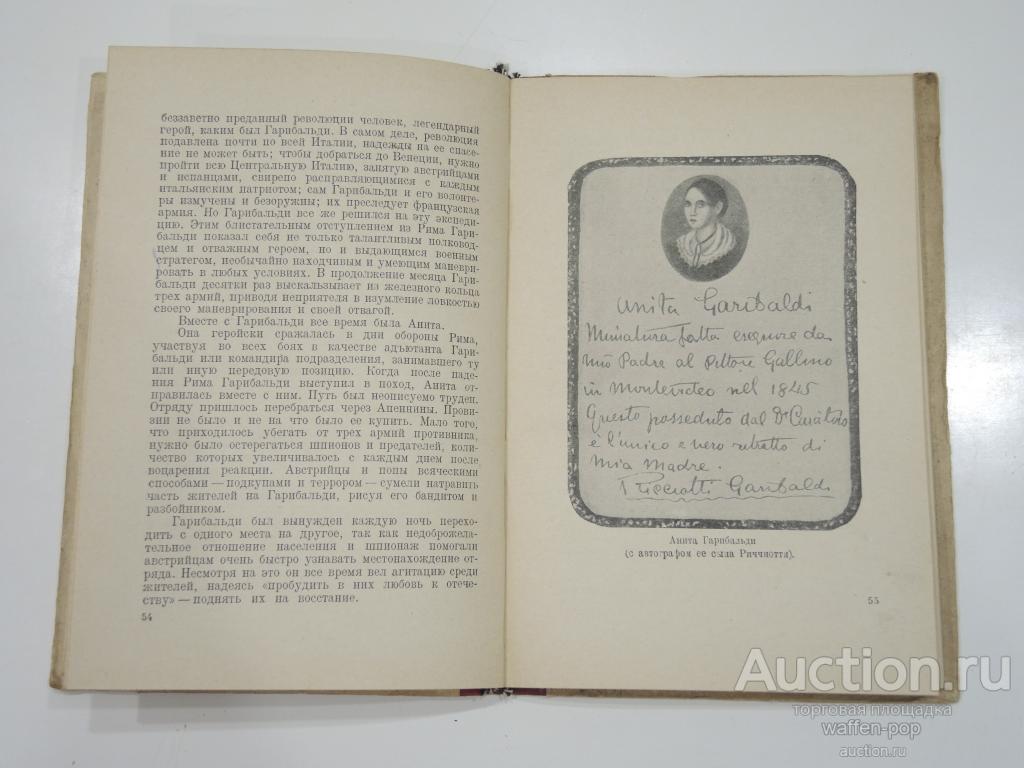 беззаветно преданный революции человек, легендарный
герой, каким был Гарибальди. В самом деле, революция
подавлена почти по всей Италии, надежды на ее спасе-
ние не может быть; чтобы добраться до Венеции, нужно
пройти всю Центральную Италию, занятую австрийцами
и испанцами, свирепо расправляющимися с каждым
итальянским патриотом; сам Гарибальди и его волонте-
ры измучены и безоружны; их преследует французская
армия. Но Гарибальди все же решился на эту экспеди-
цию. Этим блистательным отступлением из Рима Гари-
бальди показал себя не только талантливым полковод-
цем и отважным героем, но и выдающимся военным
стратегом, необычайно находчивым и умеющим маневри-
ровать в любых условиях. В продолжение месяца Гари-
бальди десятки раз выскальзывает из железного кольца
трех армий, приводя неприятеля в изумление ловкостью
своего маневрирования и своей отвагой.
Вместе с Гарибальди все время была Анита.
Она геройски сражалась в дни обороны Рима,
участвуя во всех боях в качестве адъютанта Гари-
бальди или командира подразделения, занимавшего ту
или иную передовую позицию. Когда после паде-
ния Рима Гарибальди выступил в поход, Анита от-
правилась вместе с ним. Путь был неописуемо труден.
Отряду пришлось перебраться через Апеннины. Прови-
зии не было и не на что было ее купить. Мало того,
что приходилось убегать от трех армий противника,
нужно было остерегаться шпионов и предателей,
количество которых увеличивалось с каждым днем после
воцарения реакции. Австрийцы и попы всяческими
способами — подкупами и террором — сумели натравить
часть жителей на Гарибальди, рисуя его бандитом и
разбойником.
Гарибальди был вынужден каждую ночь перехо-
дить с одного места на другое, так как недоброжела-
тельное отношение населения и шпионаж помогали
австрийцам очень быстро узнавать местонахождение от-
ряда. Несмотря на это он все время вел агитацию среди
жителей, надеясь «пробудить в них любовь к отече-
ству» — поднять их на восстание.
54
Anita Garibaldi
Miniatura fatta eseguire da
mio Padre al Pittore Gallino
in Montevideo nel 1845
Questo posseduto dal Dr Curàtolo
è l'unico e vero ritratto di
mia Madre.
Ricciotti Garibaldi
Анита Гарибальди
(с автографом ее сына Риччиотти).
55
Auction.ru
торговая площадка
waffen-pop
auction.ru